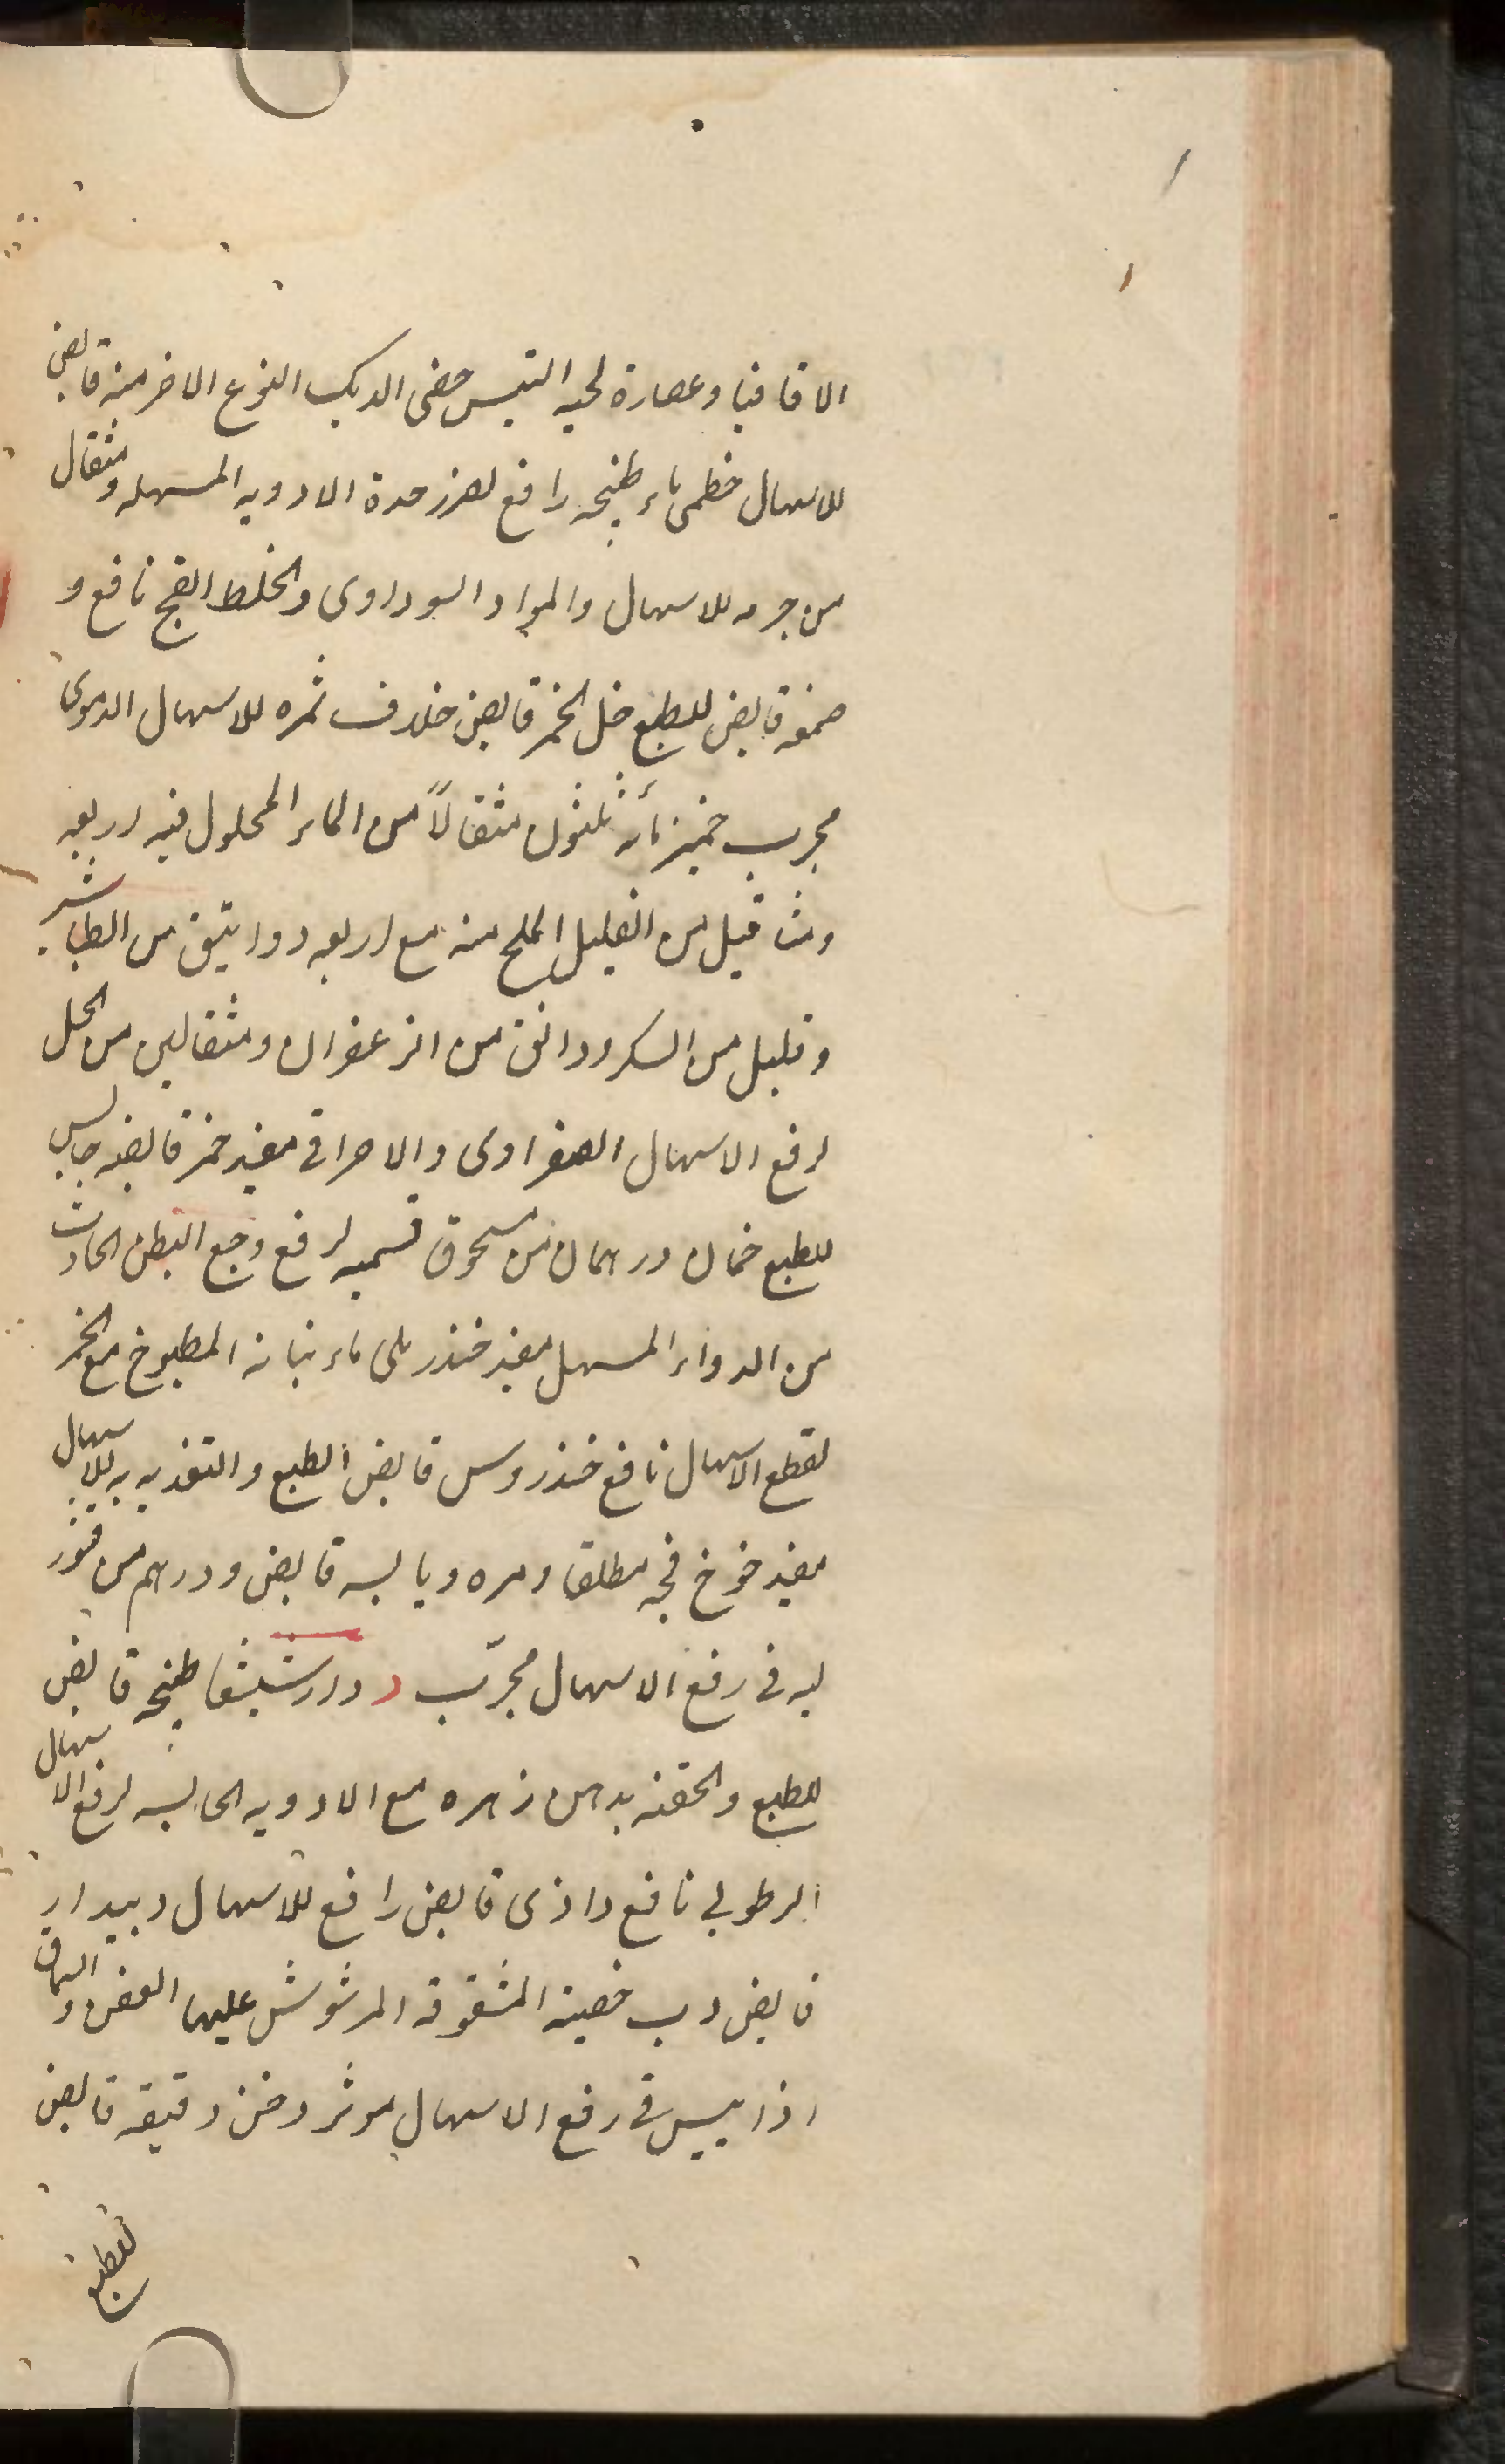 الاقاقیا وعصارة لحیه التیس خصی الدیک النوع الاخر منه قابض
للاسهال خطمی ماء طبیخه رافع لضرر حدة الادویه المسهله ومثقال
من جرمه للاسهال والمواد السوداوی والخلط الفج نافع و
صمغه قابض للطبع خل الخمر قابض خلاف ثمره للاسهال الدموی
مجرب خمیر مأته ثلثون مثقالاً من الماء المحلول فیه اربعه
مثاقیل من القلیل الملح منه مع اربعه دوانیق من الطباشیر
وقلیل من السکر ودانق من الزعفران ومثقالین من الخل
لرفع الاسهال الصفراوی والاحراقی مفید خمر قابضه حابس
للطبع خمان درهمان من مسحوق قسمیه لرفع وجع البطن الحادث
من الدواء المسهل مفید خندریلی ماء نباته المطبوخ مع الخمر
لقطع الاسهال نافع خندروس قابض الطبع والتغذیه به للاسهال
مفید خوخ فجه مطلقا ومره ویابسه قابض ودرهم من قشور
لبه فی رفع الاسهال مجرّب د دارشیشفا طبیخه قابض
للطبع والحقنه بدهن زهره مع الادویه الحابسه لرفع الاسهال
الرطوبی نافع داذی قابض رافع للاسهال دبیدار
قابض دب خصیته المشقوقه المرشوش علیها العفص والسماق
اذا یبس فی رفع الاسهال موثر دخن دقیقه قابض
للطبع